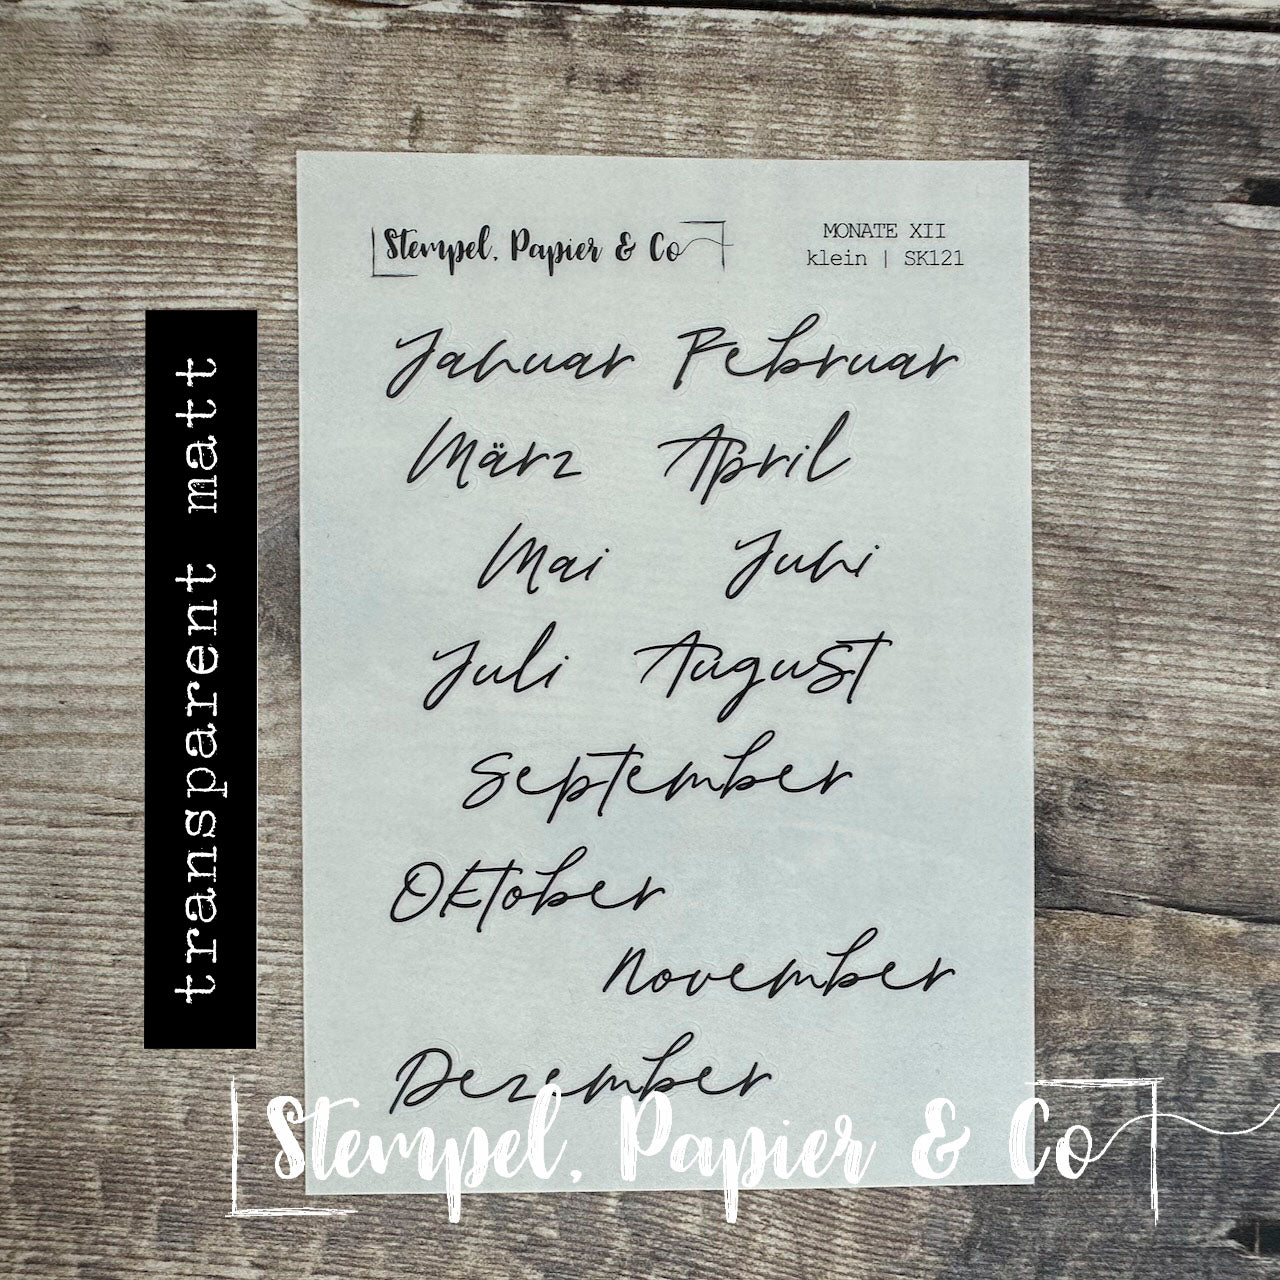 Stempel, Papier & Co
MONATE XII
klein | SK121
Januar Februar
März April
Mai Juni
Juli August
September
Oktober
November
Dezember
transparent matt
Stempel, Papier & Co